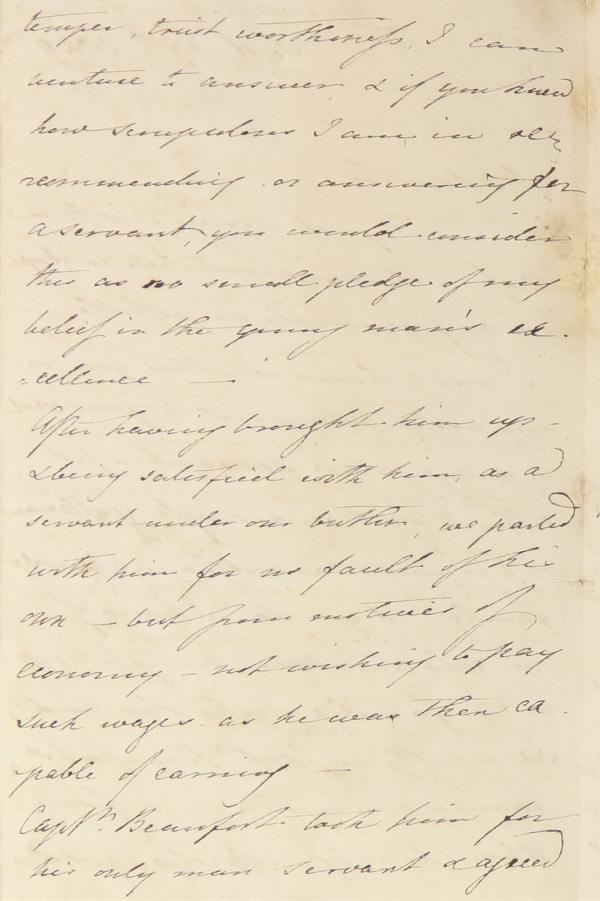 temper, trust worthiness, I can
venture to answer & if you knew
how scrupulous I am in re
recommending or answering for
a servant, you would consider
this as no small pledge of my
belief in the young man's ex-
=cellence —
After having brought him up -
& being satisfied with him, as a
servant under our butler, we parted
with him for no fault of his
own — but from motives of
economy — not wishing to pay
such wages as he was then ca
-pable of earning —
Captn. Beaufort took him for
his only man servant & agreed